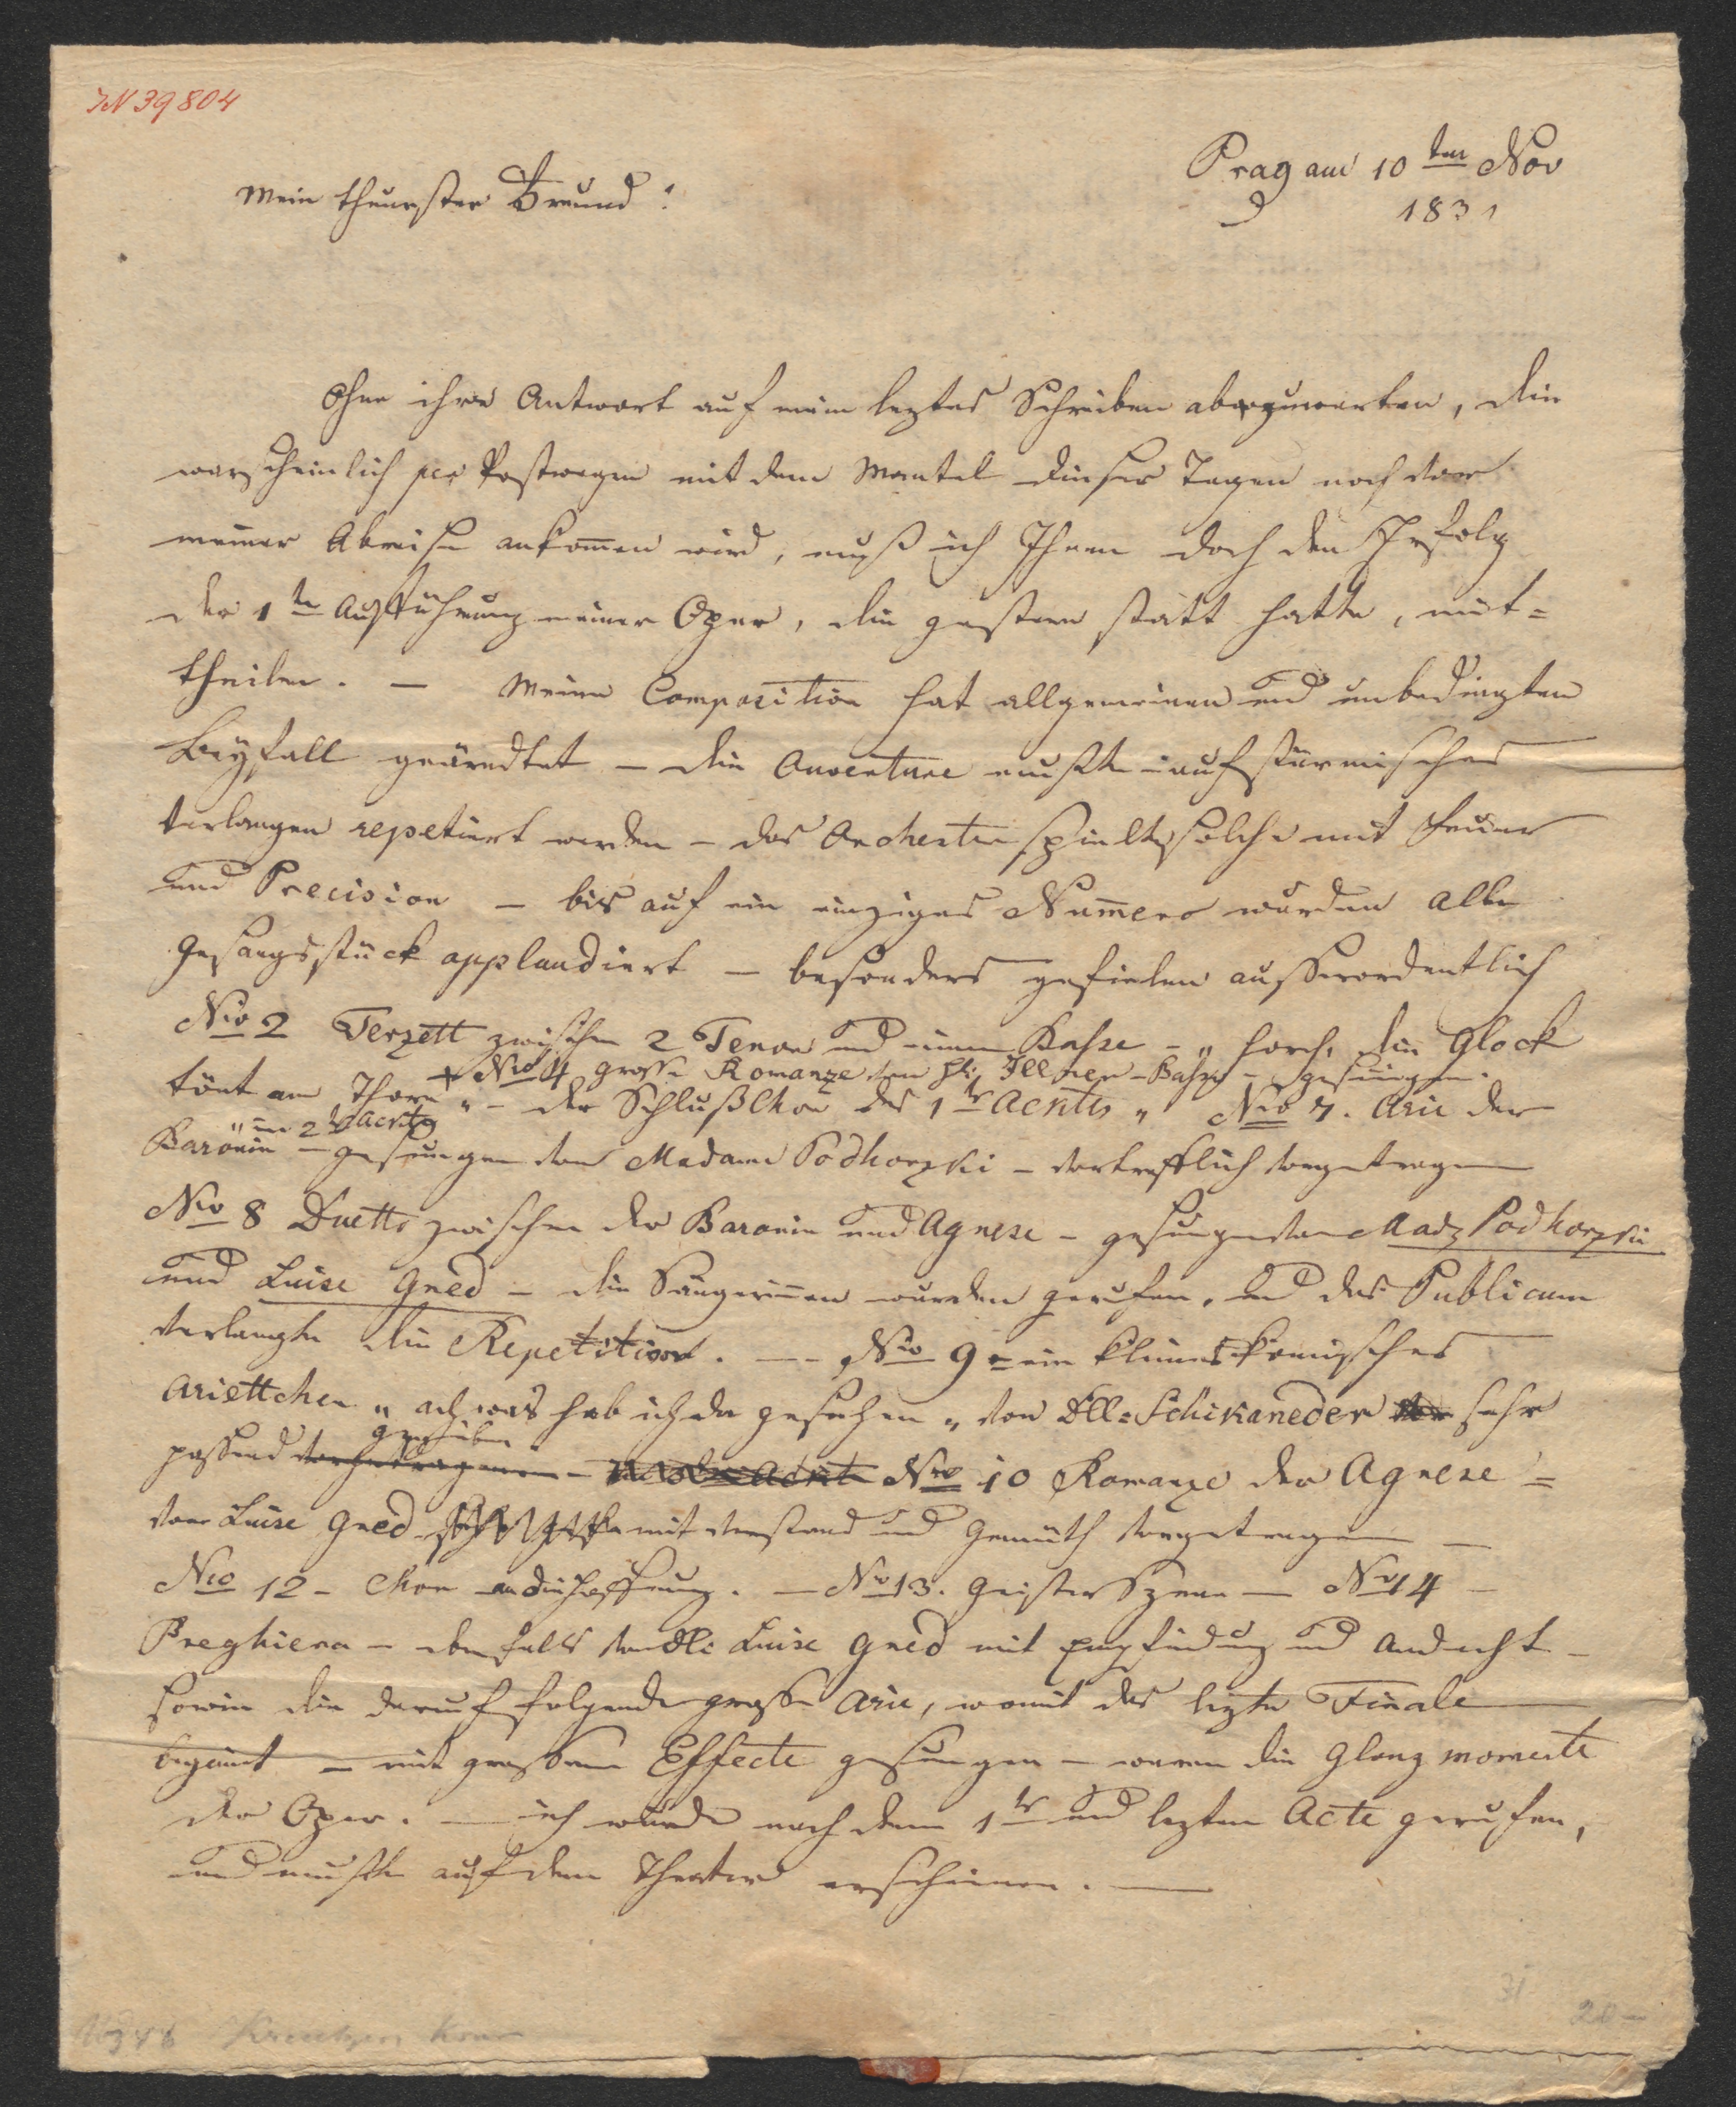 IN 39804
Prag am 10ten Nov
1831
Mein theuerster Freund!
Ohne ihre Antwort auf mein leztes Schreiben abzuwarten, die
warscheinlich per Postwagen mit dem Mantel dieser Tagen noch vor
meiner Abreise ankomen wird, muß ich Ihnen doch den Erfolg
der 1ten Aufführung meiner Oper, die gestern statt hatte, mit=
theilen. — Meine Composition hat allgemeinen und unbedingten
Beyfall geärndtet – die Ouverture mußte auf stürmisches
Verlangen repetiert werden – das Orchester spielte solche mit Feuer
und Precision – bis auf ein einziges Numero wurden alle
Gesangsstück applaudiert – besonders gefielen ausserordentlich
Nro 2 Terzett zwischen 2 Tenor und einem Basse – „ horch, die Glock
+ Nro 4 grosse Romanze von Hr: Illner – Basso – gesungen.
tönt am Thore „ – der Schlußchor des 1ten Acktes „ Nro 7. Arie der
„ im 2ten Ackte
Baronin – gesungen von Madame Podhorzki – vortrefflich vorgetragen
Nro 8 Duetto zwischen der Baronin und Agnese – gesungen von Mad: Podhorzki
und Luise Gned – die Sängerinnen wurden gerufen, und das Publicum
verlangte die Repetition. — Nro 9 – ein kleines komisches
Ariettchen „ ach was hab ich da gesehen „ von Dlle: Schikaneder sehr
gegeben
passend vorgetragen – Nro 10 Romanze der Agnese =
von Luise Gned mit Verstand und Gemüth vorgetragen —
Nro 12 – Chor an die Hoffnung. — No 13. Geister Szene — No 14 –
Preghiera – ebenfalls von Dlle Luise Gned mit Empfindung und Andacht –
sowie die darauf folgende grosse Arie, womit das lezte Finale
beginnt – mit grossem Effecte gesungen – waren die Glanz momente
der Oper. — ich wurde nach dem 1ten und lezten Acte gerufen,
und mußte auf dem Theater erscheinen. —
31
20 –
Kreutzer Konr